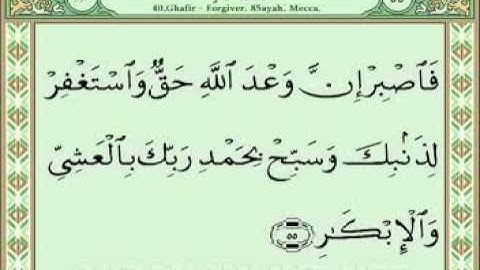 40.Ghafir - Forgiver. 85ayah. Mecca.
فَٱصْبِرْ إِنَّ وَعْدَ ٱللَّهِ حَقٌّ وَٱسْتَغْفِرْ
لِذَنۢبِكَ وَسَبِّحْ بِحَمْدِ رَبِّكَ بِٱلْعَشِىِّ
وَٱلْإِبْكَـٰرِ ٥٥